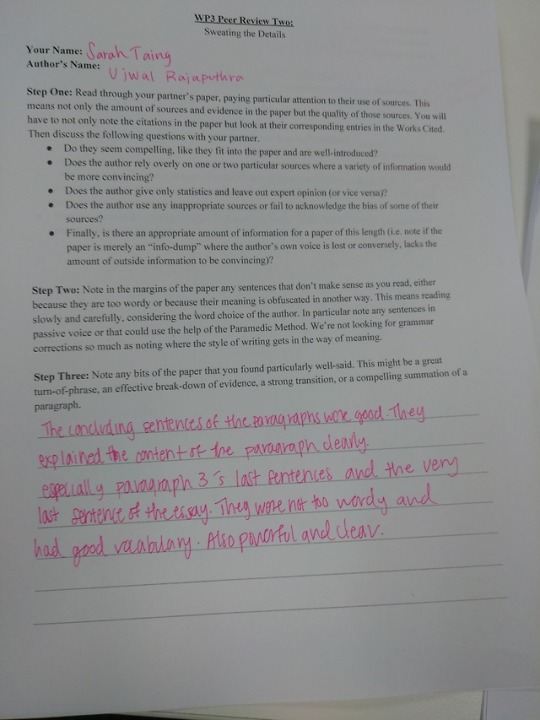 WP3 Peer Review Two:
Sweating the Details
Your Name: Sarah Taing
Author's Name: Ujwal Rajaputhra
Step One: Read through your partner's paper, paying particular attention to their use of sources. This
means not only the amount of sources and evidence in the paper but the quality of those sources. You will
have to not only note the citations in the paper but look at their corresponding entries in the Works Cited.
Then discuss the following questions with your partner.
• Do they seem compelling, like they fit into the paper and are well-introduced?
• Does the author rely overly on one or two particular sources where a variety of information would
be more convincing?
• Does the author give only statistics and leave out expert opinion (or vice versa)?
• Does the author use any inappropriate sources or fail to acknowledge the bias of some of their
sources?
• Finally, is there an appropriate amount of information for a paper of this length (i.e. note if the
paper is merely an "info-dump" where the author's own voice is lost or conversely, lacks the
amount of outside information to be convincing)?
Step Two: Note in the margins of the paper any sentences that don't make sense as you read, either
because they are too wordy or because their meaning is obfuscated in another way. This means reading
slowly and carefully, considering the word choice of the author. In particular note any sentences in
passive voice or that could use the help of the Paramedic Method. We're not looking for grammar
corrections so much as noting where the style of writing gets in the way of meaning.
Step Three: Note any bits of the paper that you found particularly well-said. This might be a great
turn-of-phrase, an effective break-down of evidence, a strong transition, or a compelling summation of a
paragraph.
The concluding sentences of the paragraphs were good. They
explained the content of the paragraph clearly.
especially paragraph 3's last sentences and the very
last sentence of the essay. They were not too wordy and
had good vocabulary. Also powerful and clear.